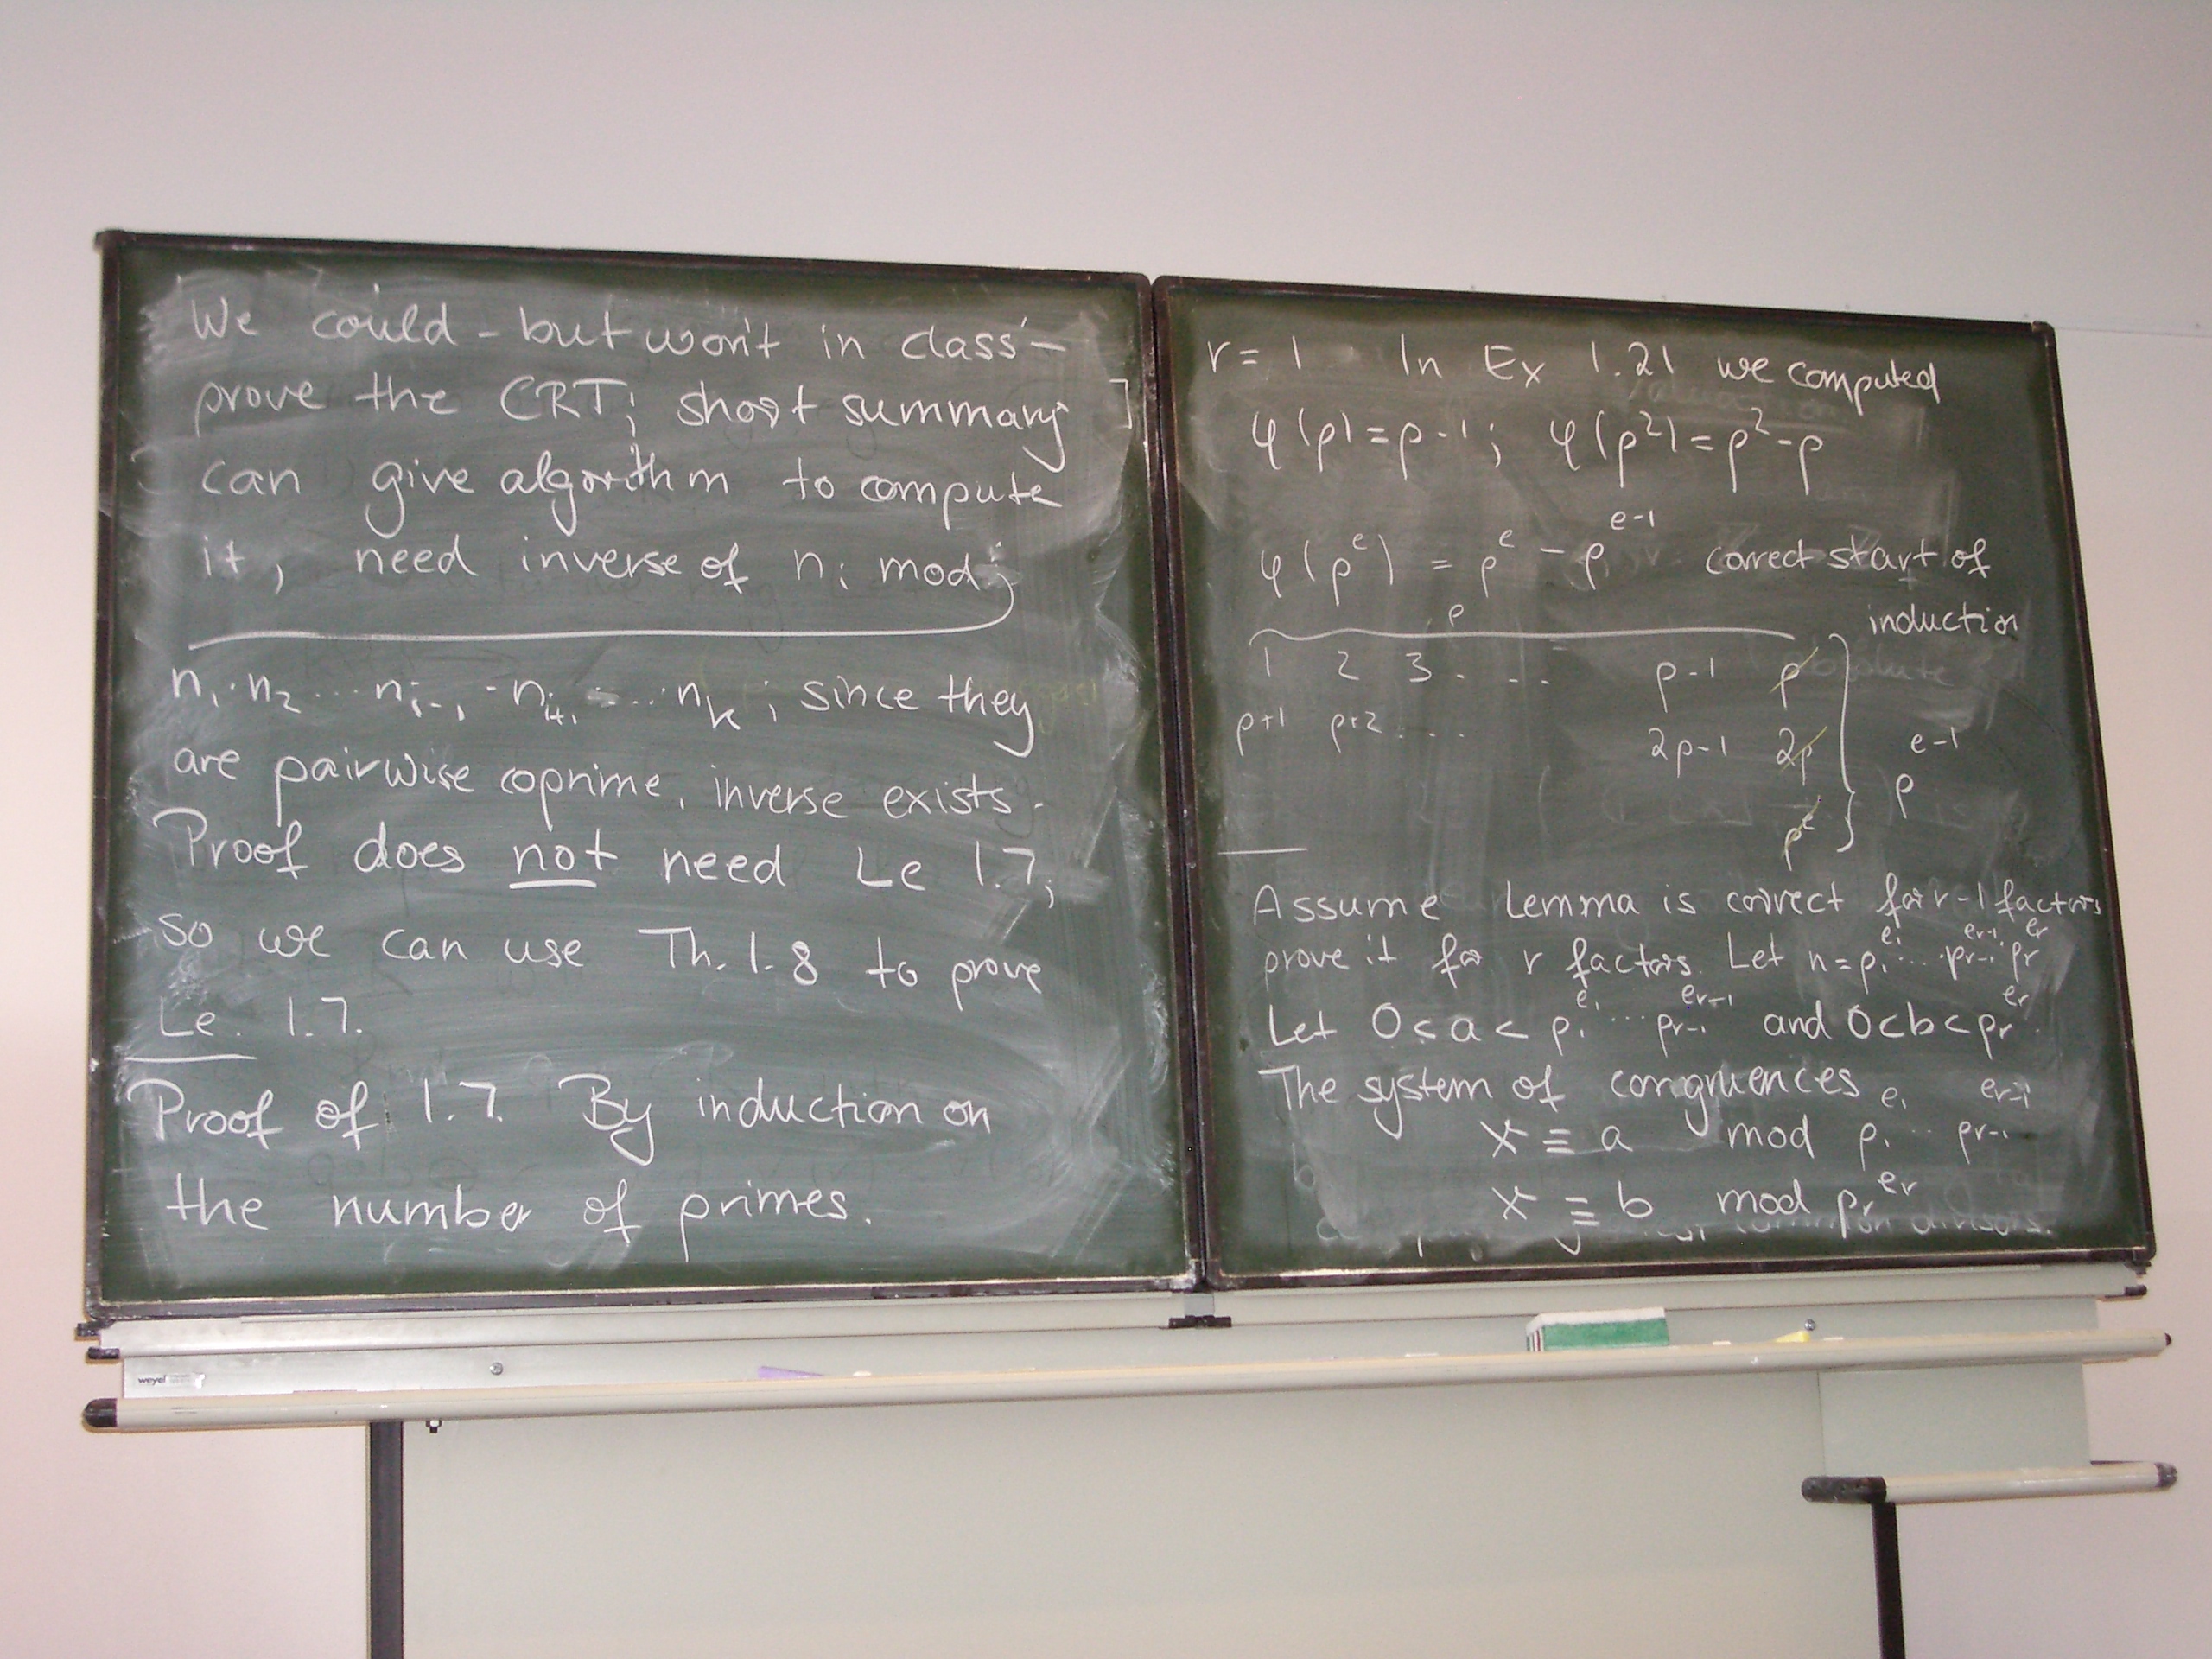 We could - but won't in class -
prove the CRT; short summary ]
can give algorithm to compute
it, need inverse of nᵢ mod
n₁·n₂ ··· nᵢ₋₁ · nᵢ₊₁ ··· nₖ ; since they
are pairwise coprime, inverse exists.
Proof does not need Le 1.7,
so we can use Th. 1.8 to prove
Le. 1.7.
Proof of 1.7. By induction on
the number of primes.
r = 1 In Ex 1.21 we computed
φ(p) = p-1 ; φ(p²) = p²-p
φ(pᵉ) = pᵉ - pᵉ⁻¹ correct start of
induction
p
1 2 3 . . . . p-1 p
p+1 p+2 . . . 2p-1 2p
pᵉ⁻¹
pᵉ
Assume Lemma is correct for r-1 factors
prove it for r factors. Let n = p₁ᵉ¹ ··· pᵣ₋₁ᵉʳ⁻¹ pᵣᵉʳ
Let 0 ≤ a < p₁ᵉ¹ ··· pᵣ₋₁ᵉʳ⁻¹ and 0 < b < pᵣᵉʳ.
The system of congruences
x ≡ a mod p₁ᵉ¹ ·· pᵣ₋₁ᵉʳ⁻¹
x ≡ b mod pᵣᵉʳ
weyel